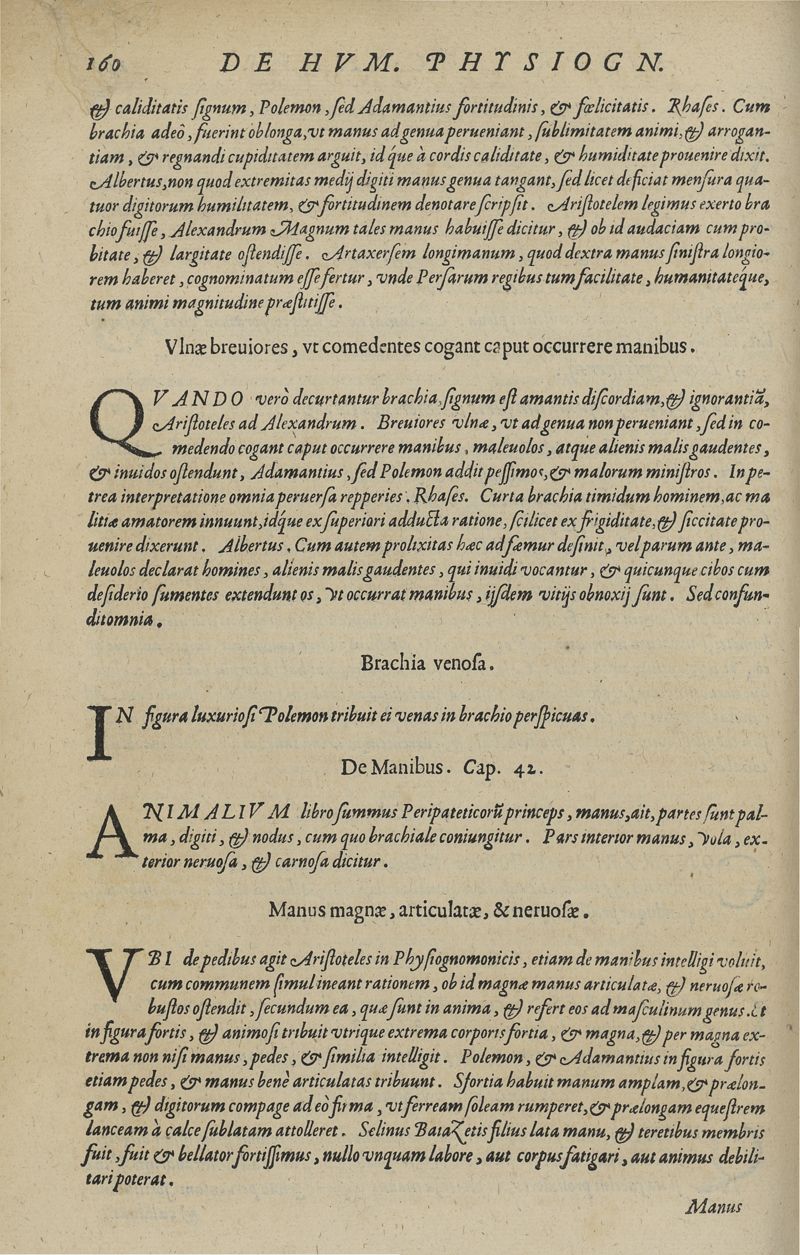 160 DE HVM. PHYSIOGN.
& caliditatis ſignum, Polemon, ſed Adamantius fortitudinis, & fœlicitatis. Rhaſes. Cum
brachia adeò, fuerint oblonga, vt manus ad genua perueniant, ſublimitatem animi, & arrogan-
tiam, & regnandi cupiditatem arguit, idque à cordis caliditate, & humiditate prouenire dixit.
Albertus, non quod extremitas medij digiti manus genua tangant, ſed licet deficiat menſura qua-
tuor digitorum humilitatem, & fortitudinem denotare ſcripſit. Ariſtotelem legimus exerto bra
chio fuiſſe, Alexandrum Magnum tales manus habuiſſe dicitur, & ob id audaciam cum pro-
bitate, & largitate oſtendiſſe. Artaxerſem longimanum, quod dextra manus ſiniſtra longio-
rem haberet, cognominatum eſſe fertur, vnde Perſarum regibus tum facilitate, humanitateq́ue,
tum animi magnitudine præſtitiſſe.
Vlnæ breuiores, vt comedentes cogant caput occurrere manibus.
QVANDO verò decurtantur brachia, ſignum eſt amantis diſcordiam, & ignorantiã,
Ariſtoteles ad Alexandrum. Breuiores vlnæ, vt ad genua non perueniant, ſed in co-
medendo cogant caput occurrere manibus, maleuolos, atque alienis malis gaudentes,
& inuidos oſtendunt, Adamantius, ſed Polemon addit peſſimos, & malorum miniſtros. In pe-
trea interpretatione omnia peruerſa repperies. Rhaſes. Curta brachia timidum hominem, ac ma
litiæ amatorem innuunt, idq́ue ex ſuperiori adducta ratione, ſcilicet ex frigiditate, & ſiccitate pro-
uenire dixerunt. Albertus. Cum autem prolixitas hæc ad fæmur definit, vel parum ante, ma-
leuolos declarat homines, alienis malis gaudentes, qui inuidi vocantur, & quicunque cibos cum
deſiderio ſumentes extendunt os, vt occurrat manibus, ijſdem vitijs obnoxij ſunt. Sed confun-
dit omnia.
Brachia venoſa.
IN figura luxurioſi Polemon tribuit ei venas in brachio perſpicuas.
De Manibus. Cap. 42.
ANIMALIVM libro ſummus Peripateticorũ princeps, manus, ait, partes ſunt pal-
ma, digiti, & nodus, cum quo brachiale coniungitur. Pars interior manus, vola, ex-
terior neruoſa, & carnoſa dicitur.
Manus magnæ, articulatæ, & neruoſæ.
VBI de pedibus agit Ariſtoteles in Phyſiognomonicis, etiam de manibus intelligi voluit,
cum communem ſimul ineant rationem, ob id magnæ manus articulatæ, & neruoſæ ro-
buſtos oſtendit, ſecundum ea, quæ ſunt in anima, & refert eos ad maſculinum genus. Et
in figura fortis, & animoſi tribuit vtrique extrema corporis fortia, & magna, & per magna ex-
trema non niſi manus, pedes, & ſimilia intelligit. Polemon, & Adamantius in figura fortis
etiam pedes, & manus benè articulatas tribuunt. Sfortia habuit manum amplam, & prælon-
gam, & digitorum compage adeò firma, vt ferream ſoleam rumperet, & prælongam equeſtrem
lanceam à calce ſublatam attolleret. Selinus Baiazetis filius lata manu, & teretibus membris
fuit, fuit & bellator fortiſſimus, nullo vnquam labore, aut corpus fatigari, aut animus debili-
tari poterat.
Manus